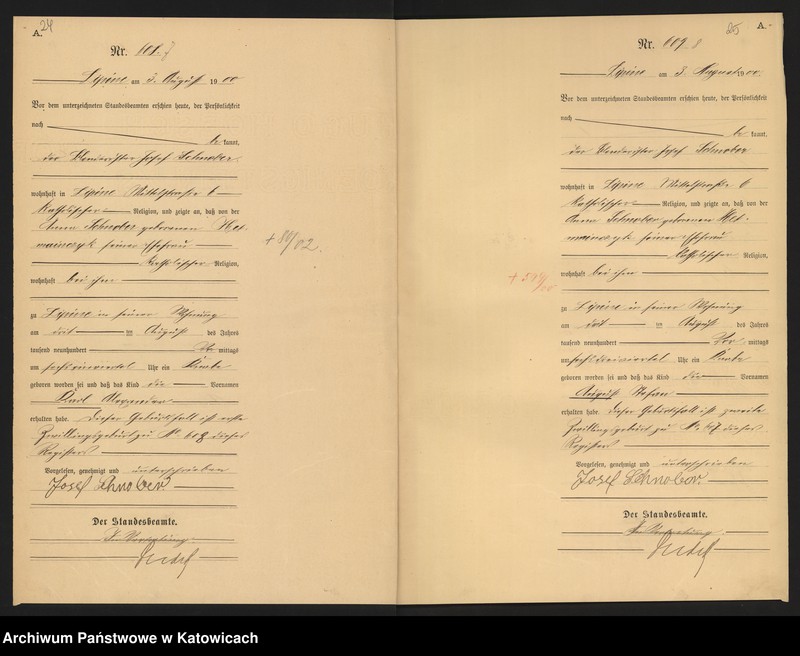 A. 24
Nr. 608.
Lipine am 3. August 1900
Vor dem unterzeichneten Standesbeamten erschien heute, der Persönlichkeit
nach
be kannt,
der Josef Schnober
wohnhaft in Lipine Mittelstraße 6
katholischer Religion, und zeigte an, daß von der
Anna Schnober geborenen
seiner Ehefrau
katholischer Religion,
wohnhaft bei ihm
zu Lipine in seiner Wohnung
am drei ten August des Jahres
tausend neunhundert Vor mittags
um sechs Uhr ein Knabe
geboren worden sei und daß das Kind die Vornamen
Karl Alexander
erhalten habe. Dieser Geburtsfall ist erste
Zwillingsgeburt zu No. 609 dieses
Registers
Vorgelesen, genehmigt und unterschrieben
Josef Schnober
Der Standesbeamte.
In Vertretung
+ /02.
25 A.
Nr. 609
Lipine am 3 August 1900.
Vor dem unterzeichneten Standesbeamten erschien heute, der Persönlichkeit
nach
be kannt,
der Josef Schnober
wohnhaft in Lipine Mittelstraße 6
katholischer Religion, und zeigte an, daß von der
Anna Schnober geborenen
seiner Ehefrau
katholischer Religion,
wohnhaft bei ihm
zu Lipine in seiner Wohnung
am drei ten August des Jahres
tausend neunhundert Vor mittags
um Uhr ein Knabe
geboren worden sei und daß das Kind die Vornamen
August Stefan
erhalten habe. Dieser Geburtsfall ist zweite
Zwillingsgeburt zu No. dieses
Registers
Vorgelesen, genehmigt und unterschrieben
Josef Schnober.
Der Standesbeamte.
In Vertretung
Archiwum Państwowe w Katowicach